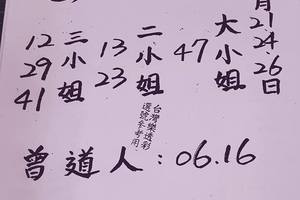 月21.24.26日
大小姐 47
二小姐 13 23
三小姐 12 29 41
台灣樂透彩
選號參考用
曾道人:06.16